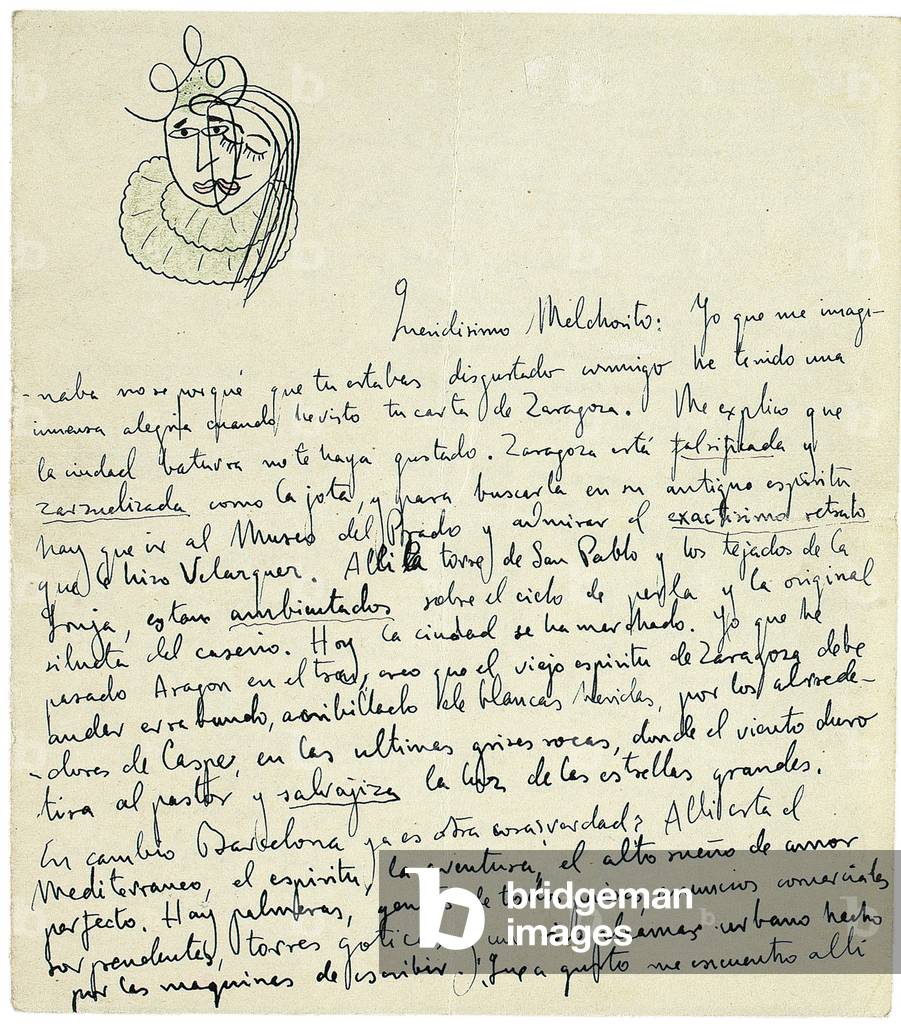 Queridisimo Melchorito: Yo que me imagi-
-naba no se porqué que tu estabas disgustado conmigo he tenido una
inmensa alegria cuando he visto tu carta de Zaragoza. Me explico que
la ciudad baturra no te haya gustado. Zaragoza está falsificada y
zarzuelizada como la jota, y para buscarla en su antiguo espiritu
hay que ir al Museo del Prado y admirar el exactisimo retrato
que le hizo Velazquez. Alli la torre de San Pablo y los tejados de la
Lonja, estan ambientados sobre el cielo de perla y la original
silueta del caserio. Hoy la ciudad se ha marchado. Yo que he
pasado Aragon en el tren, creo que el viejo espiritu de Zaragoza debe
andar errabundo, acribillado de blancas heridas, por los alrrede-
-dores de Caspe, en las ultimas grises rocas, donde el viento duro
tira al pastor y salvajiza la luz de las estrellas grandes.
En cambio Barcelona ya es otra cosa ¿verdad? Alli esta el
Mediterraneo, el espiritu, la aventura, el alto sueño de amor
perfecto. Hay palmeras, gentes de todos paises, anuncios comerciales
sorprendentes, torres goticas y un urbano hecho
por las maquinas de escribir. ¡Que a gusto me encuentro alli
b bridgeman
images